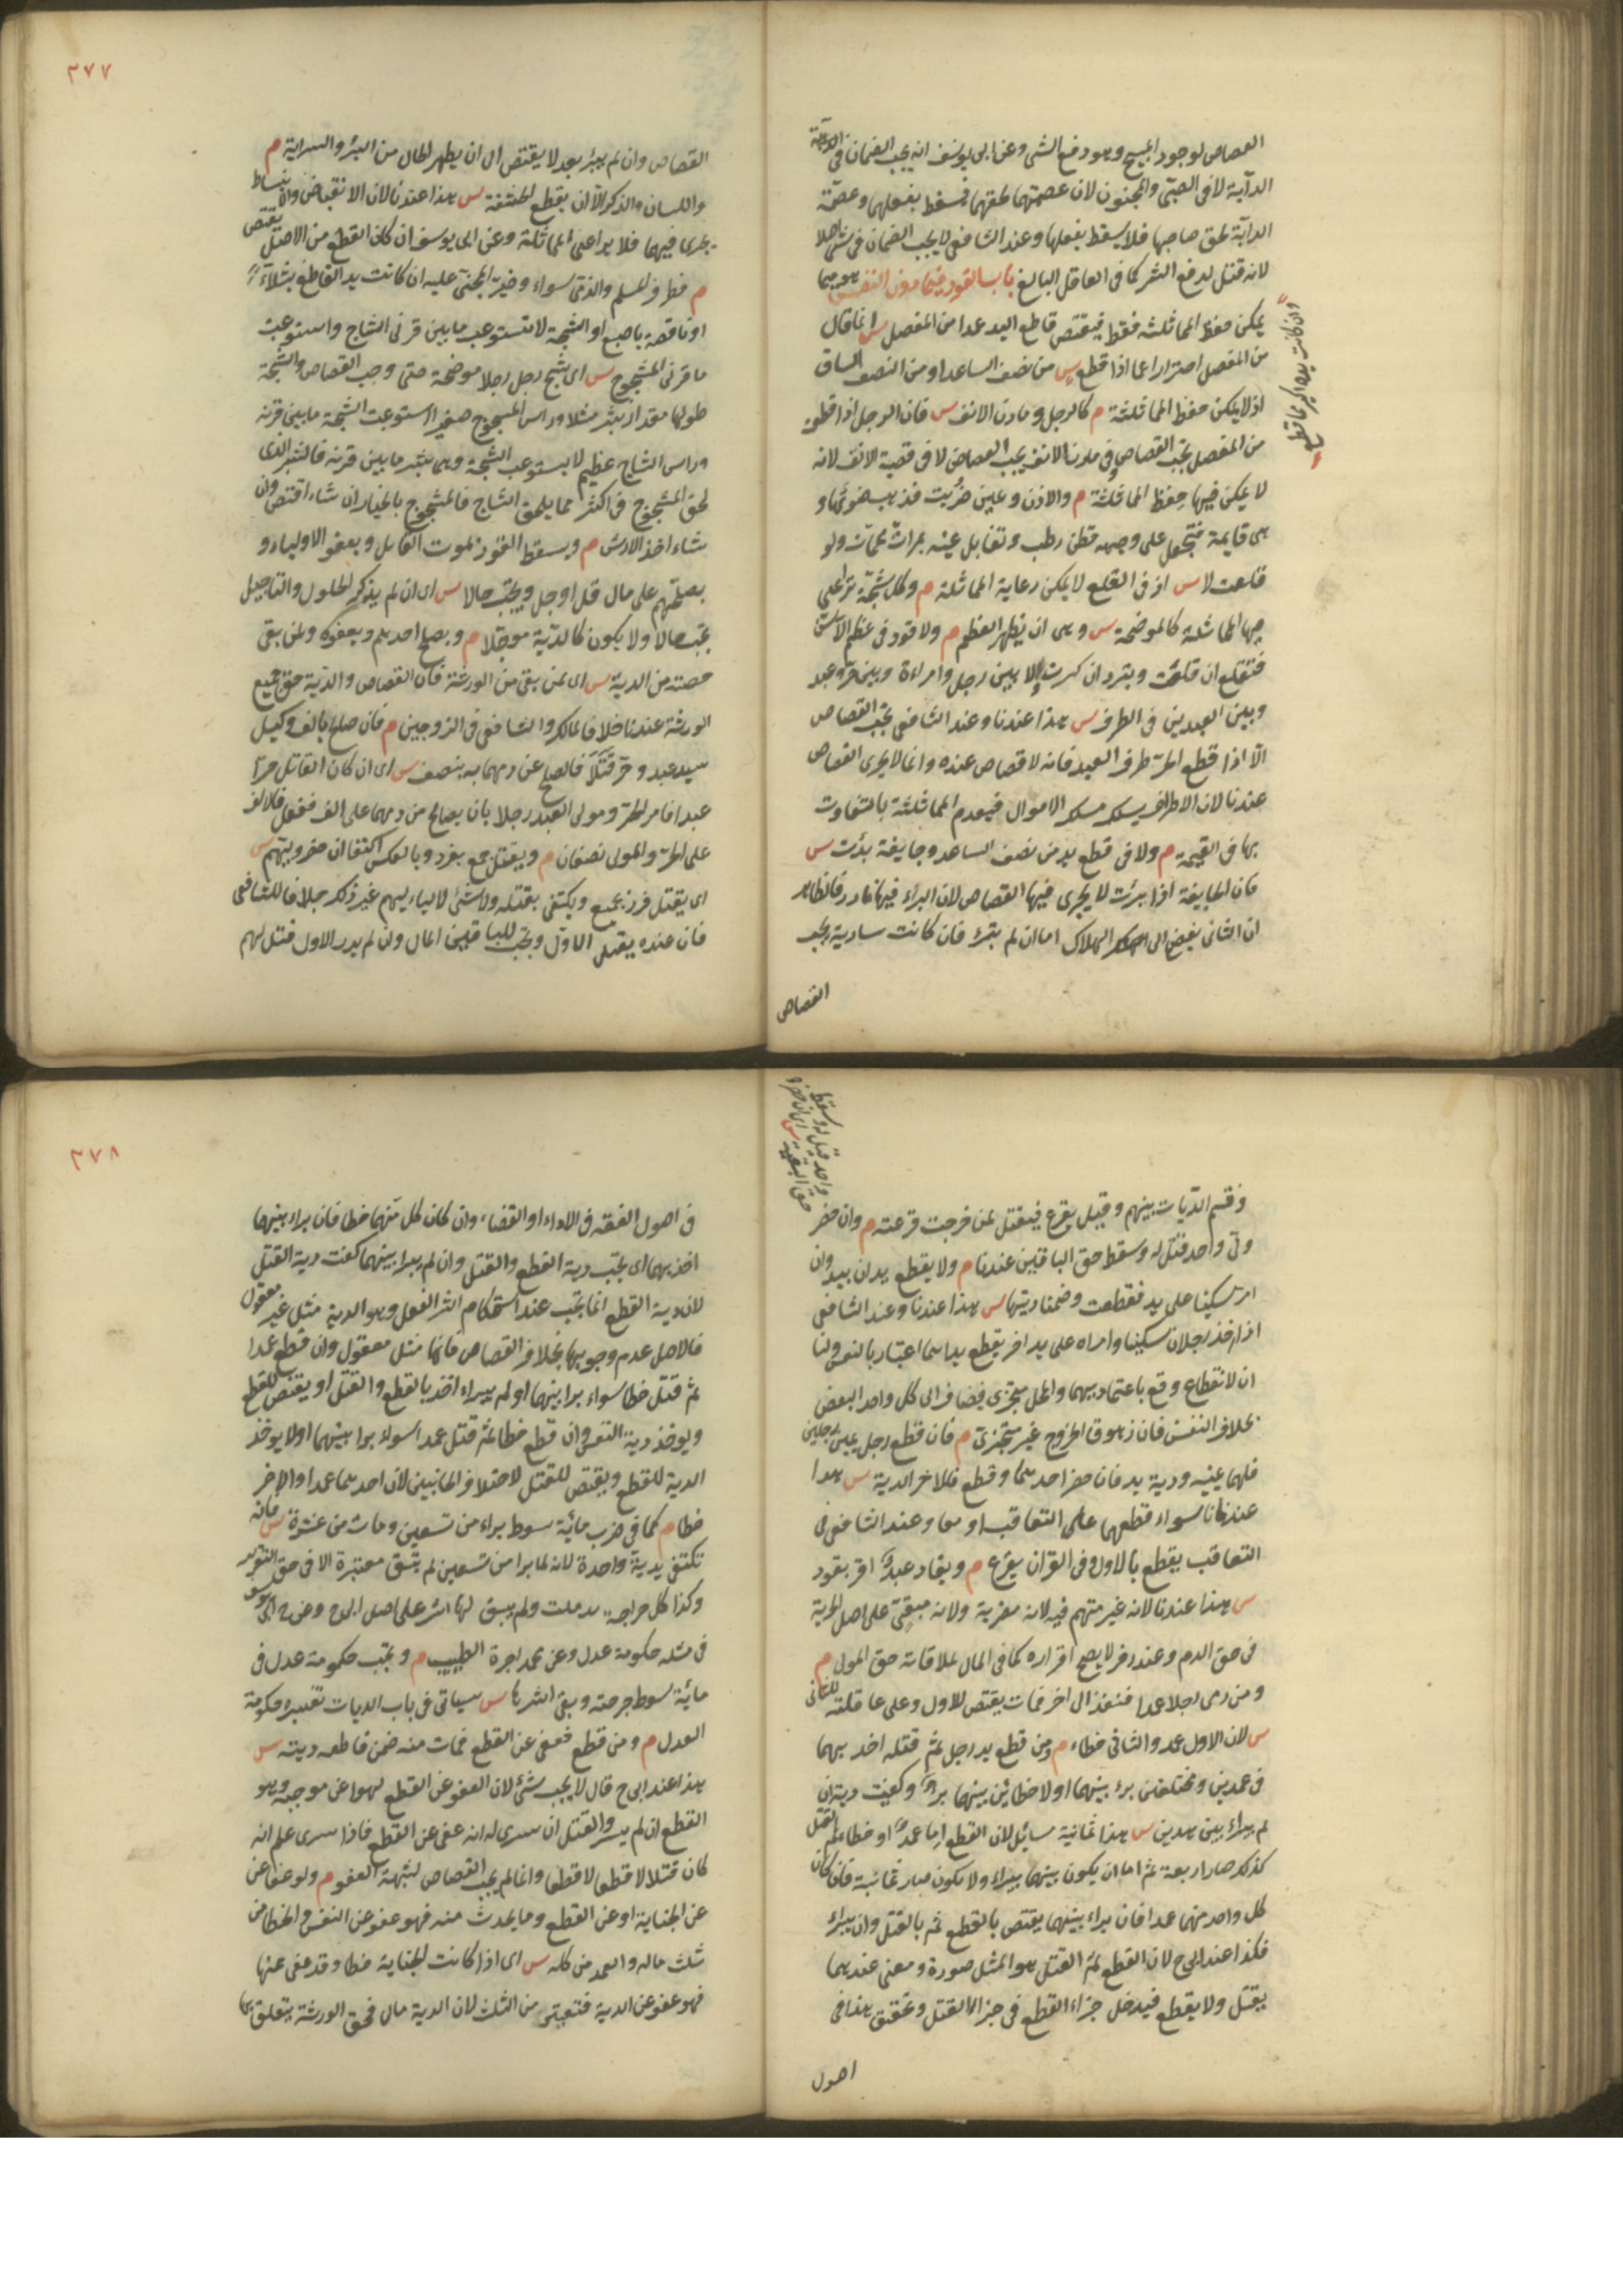 القصاص لوجود المبيح وهو دفع الشر وعن ابى يوسف انه يجب الضمان فى الدابة
الدابة لا فى الصبى والمجنون لان عصمتهما لحقهما فيسقط بفعلهما وعصمة
الدابة لحق صاحبها فلا يسقط بفعلها وعند الشافعى لا يجب الضمان فى شئ اصلا
لانه قتل لدفع الشر كما فى العاقل البالغ باب القود فيما دون النفس هو فيما
يمكن حفظ المماثلة فقط فيقتص قاطع اليد عمدا من المفصل س انما قال
وان كانت يده اكبر مما قطع
من المفصل احترازا عما اذا قطع س من نصف الساعد او من النصف الساق
اذ لا يمكن حفظ المماثلة م كالرجل ومارن الانف س فان الرجل اذا قطع
من المفصل يجب القصاص وفى مارن الانف يجب القصاص لا فى قصبة الانف لانه
لا يمكن فيها حفظ المماثلة م والاذن وعين ضربت فذهب ضوئها و
هى قايمة فيجعل على وجهه قطن رطب وتقابل عينه بمرات محمات ولو
قلعت لا س اذ فى القلع لا يمكن رعاية المماثلة م وكل شجة تراعى
فيها المماثلة كالموضحة س وهى ان يظهر العظم م ولا قود فى عظم الا السن
فتقلع ان قلعت وتبرد ان كسرت ولا بين رجل وامراءة وبين حر وعبد
وبين العبدين فى الطرف س هذا عندنا وعند الشافعى يجب القصاص
الا اذا قطع الحر طرف العبد فانه لا قصاص عنده وانما لا يجرى القصاص
عندنا لان الاطراف يسلك مسلك الاموال فيعدم المماثلة بالتفاوت
بها فى القيمة م ولا فى قطع يد من نصف الساعد وجايفة برئت س
فان الجايفة اذا برئت لا يجرى فيها القصاص لان البراء فيها نادر فالظاهر
ان الثانى يفضى الى الهلاك اما ان لم تبرء فان كانت سارية يجب
القصاص
٢٧٧
القصاص وان لم يبرء بعد لا يقتص الى ان يظهر الحال من البرء والسراية م
واللسان والذكر الا ان يقطع الحشفة س هذا عندنا لان الانقباض والانبساط
يجرى فيهما فلا يراعى المماثلة وعن ابى يوسف ان كان القطع من الاصل يقتص
م وطرف المسلم والذمى سواء وخير المجنى عليه ان كانت يد القاطع شلاء
او ناقصة باصبع او الشجة لا تستوعب ما بين قرنى الشاج واستوعبت
ما قرنى المشجوج س اى شج رجل رجلا موضحة حتى وجب القصاص والشجة
طولها مقدار شبر مثلا وراس المشجوج صغير استوعبت الشجة ما بين قرنيه
وراس الشاج عظيم لا يستوعب الشجة وهى شبر ما بين قرنيه فالشبر الذى
لحق المشجوج فى اكثر مما يلحق الشاج فالمشجوج بالخيار ان شاء اقتص وان
شاء اخذ الارش م ويسقط القود بموت القاتل وبعفو الاولياء و
بصلحهم على مال قل او جل ويجب حالا س اى ان لم يذكر الحلول والتاجيل
يجب حالا ولا يكون كالدية موجلا م وبصلح احدهم وبعفوه ولمن بقى
حصته من الدية س اى لمن بقى من الورثة فان القصاص والدية حق جميع
الورثة عندنا خلافا لمالك والشافعى فى الزوجين م فان صلح بالف وكيل
سيد عبد وحر قتلا فالصلح عن دمهما به بنصف س اى ان كان القاتل حرا
عبدا فامر الحر ومولى العبد رجلا بان يصالح من دمهما على الف ففعل فالالف
على الحر والمولى نصفان م ويقتل جمع بفرد وبالعكس اكتفا ان حضر وليهم س
اى يقتل فرد بجمع ويكتفى بقتله ولا شئ لاولياءهم غير ذلك خلافا للشافعى
فان عنده يقتل الاول ويجب للباقين المال وان لم يدر الاول قتل لهم
وقسم الديات بينهم وقيل يقرع فيقتل لمن خرجت قرعته م وان حضر
واحد قتل له وسقط
حق البقية س اى ان حضر
ولى واحد قتل له وسقط حق الباقين عندنا م ولا يقطع يدان بيد وان
امرّ سكينا على يد فقطعت وضمنا ديتها س هذا عندنا وعند الشافعى
اذا اخذ رجلان سكينا وامراه على يد اخر يقطع يداهما اعتبار بالنفس ولنا
ان الانقطاع وقع باعتماديهما والمحل متجزى فيضاف الى كل واحد البعض
بخلاف النفس فان زهوق الروح غير متجزى م فان قطع رجل يمينى رجلين
فلهما يمينه ودية يد فان حضر احدهما وقطع فللاخر الدية س هذا
عندنا سواء قطعهما على التعاقب او معا وعند الشافعى فى
التعاقب يقطع بالاول وفى القران يقرع م ويقاد عبد اقر بقود
س هذا عندنا لانه غير متهم فيه لانه مضربه ولانه مبقى على اصل الحرية
فى حق الدم وعند زفر لا يصح اقراره كما فى المال لملاقات حق المولى م
ومن رمى رجلا عمدا فنفذ الى اخر فمات يقتص للاول وعلى عاقلته للثانى
س لان الاول عمد والثانى خطاء م ومن قطع يد رجل ثم قتله اخذ بهما
فى عمدين ومختلفين برء بينهما اولا وخطائين بينهما برء وكفيت دية ان
لم يبراء بين هذين س هذا ثمانية مسائل لان القطع اما عمد او خطاء ثم القتل
كذلك صار اربعة ثم اما ان يكون بينهما براء ولا يكون صار ثمانية فان كان
كل واحد منهما عمدا فان براء بينهما يقتص بالقطع ثم بالقتل وان لم يبراء
فكذا عند ابى ح لان القطع ثم القتل هو المثل صورة ومعنى عندهما
يقتل ولا يقطع فيدخل جزاء القطع فى جزاء القتل وتحقيق هذا فى
اصول
٢٧٨
فى اصول الفقه فى الاداء او القضاء وان كان كل منهما خطا فان براء بينهما
اخذ بهما اى يجب دية القطع والقتل وان لم يبرا بينهما كفت دية القتل
لان دية القطع انما يجب عند استحكام اثر الفعل وهو الدية مثل غير معقول
فالاصل عدم وجوبها بخلاف القصاص فانها مثل معقول وان قطع عمدا
ثم قتل خطا سواء برا بينهما او لم يبراء اخذ بالقطع والقتل او يقتص للقطع
ويوخذ دية النفس وان قطع خطا ثم قتل عمدا سواء برا بينهما اولا يوخذ
الدية للقطع ويقتص للقتل لاختلاف الجانبين لان احدهما عمدا والاخر
خطا م كما فى ضرب مائة سوط براء من تسعين ومات من عشرة س فانه
تكتفى بدية واحدة لانه لما برا من تسعين لم تبق معتبرة الا فى حق التعزير
وكذا كل جراحة اندملت ولم يبق لها اثر على اصل ابى ح وعن ابى يوسف
فى مثله حكومة عدل وعن محمد اجرة الطبيب م وتجب حكومة عدل فى
مائة سوط جرحته وبقى اثرها س سياتى فى باب الديات تفسير حكومة
العدل م ومن قطع فعفى عن القطع فمات منه ضمن قاطعه ديته س
هذا عند ابى ح قالا لا يجب شئ لان العفو عن القطع هو عن موجبه وهو
القطع ان لم يسر والقتل ان سرى له انه عفى عن القطع فاذا سرى علم انه
كان قتلا لا قطعا وانما لم يجب القصاص لشبهة العفو م ولو عفا عن
عن الجناية او عن القطع وما يحدث منه فهو عفو عن النفس والخطا من
ثلث ماله والعمد من كله س اى اذا كانت الجناية خطا وقد عفى عنها
فهو عفو عن الدية فتعتبر من الثلث لان الدية مال فحق الورثة يتعلق بها